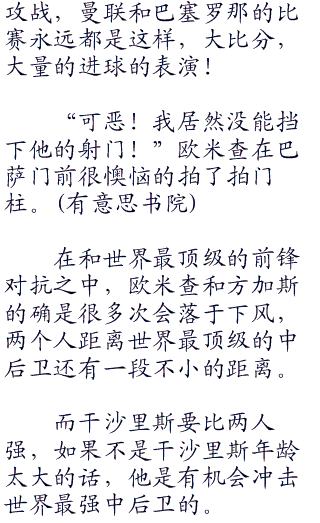 攻战，曼联和巴塞罗那的比
赛永远都是这样，大比分，
大量的进球的表演！
“可恶！我居然没能挡
下他的射门！”欧米查在巴
萨门前很懊恼的拍了拍门
柱。(有意思书院)
在和世界最顶级的前锋
对抗之中，欧米查和方加斯
的确是很多次会落于下风，
两个人距离世界最顶级的中
后卫还有一段不小的距离。
而干沙里斯要比两人
强，如果不是干沙里斯年龄
太大的话，他是有机会冲击
世界最强中后卫的。